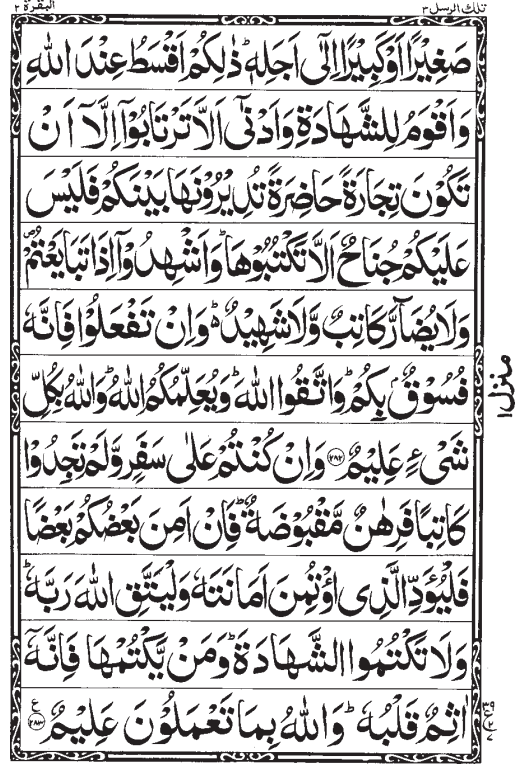 تلك الرسل ٣
البقرة ٢
صَغِيْرًا اَوْ كَبِيْرًا اِلٰٓى اَجَلِهٖ ؕ ذٰلِكُمْ اَقْسَطُ عِنْدَ اللّٰهِ
وَاَقْوَمُ لِلشَّهَادَةِ وَاَدْنٰٓى اَلَّا تَرْتَابُوْٓا اِلَّاۤ اَنْ
تَكُوْنَ تِجَارَةً حَاضِرَةً تُدِيْرُوْنَهَا بَيْنَكُمْ فَلَيْسَ
عَلَيْكُمْ جُنَاحٌ اَلَّا تَكْتُبُوْهَا ؕ وَاَشْهِدُوْٓا اِذَا تَبَايَعْتُمْ ۪
وَلَا يُضَآرَّ كَاتِبٌ وَّلَا شَهِيْدٌ ؕ۬ وَاِنْ تَفْعَلُوْا فَاِنَّهٗ
فُسُوْقٌۢ بِكُمْ ؕ وَاتَّقُوا اللّٰهَ ؕ وَيُعَلِّمُكُمُ اللّٰهُ ؕ وَاللّٰهُ بِكُلِّ
شَيْءٍ عَلِيْمٌ ﴿٢٨٢﴾ وَاِنْ كُنْتُمْ عَلٰى سَفَرٍ وَّلَمْ تَجِدُوْا
كَاتِبًا فَرِهٰنٌ مَّقْبُوْضَةٌ ؕ فَاِنْ اَمِنَ بَعْضُكُمْ بَعْضًا
فَلْيُؤَدِّ الَّذِى اؤْتُمِنَ اَمَانَتَهٗ وَلْيَتَّقِ اللّٰهَ رَبَّهٗ ؕ
وَلَا تَكْتُمُوا الشَّهَادَةَ ؕ وَمَنْ يَّكْتُمْهَا فَاِنَّهٗۤ
اٰثِمٌ قَلْبُهٗ ؕ وَاللّٰهُ بِمَا تَعْمَلُوْنَ عَلِيْمٌ ﴿٢٨٣﴾ ع
منزل ١
٣٩
ع
٧